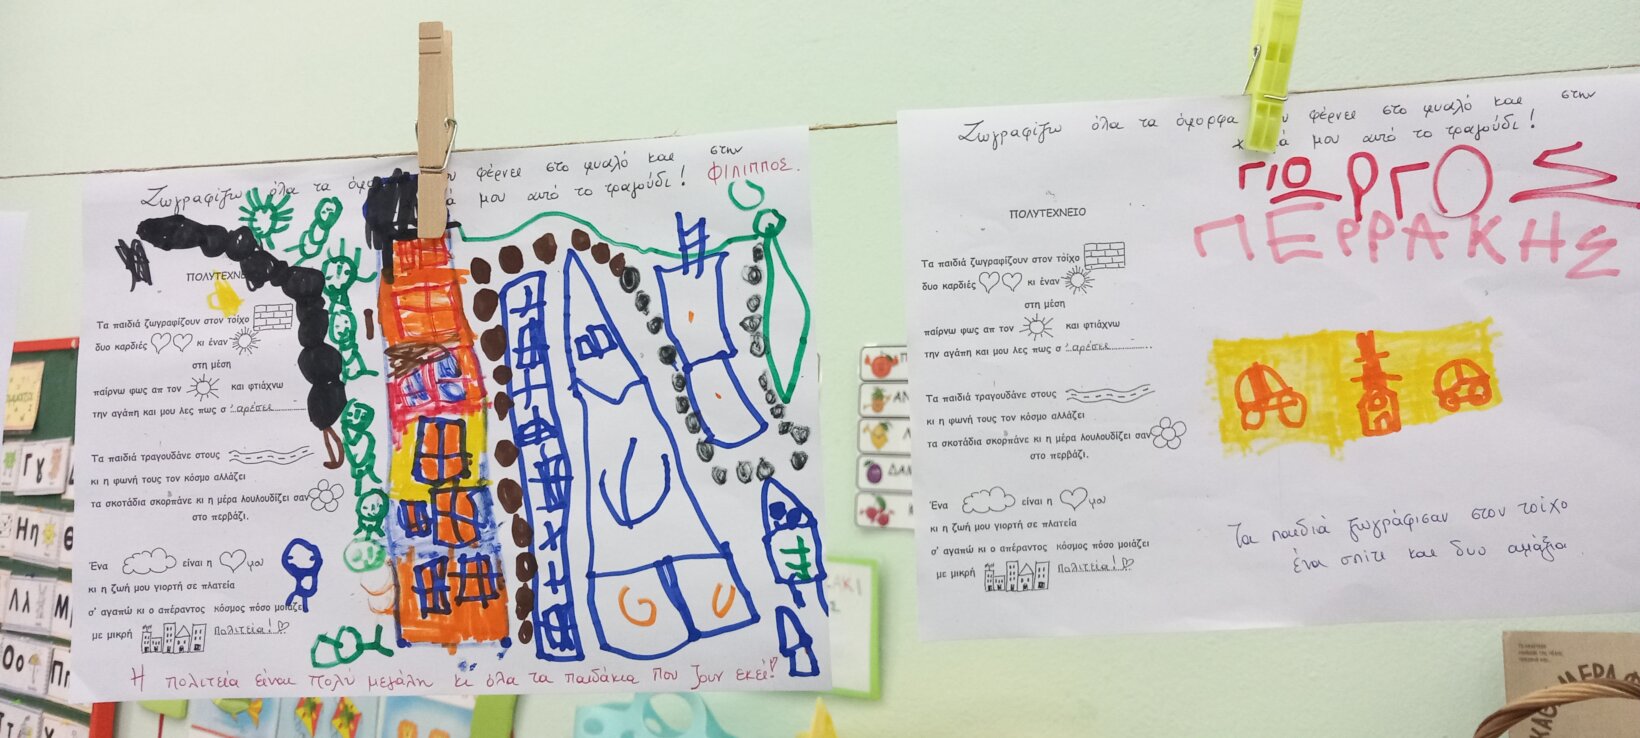 Ζωγραφίζω όλα τα όμορφα φέρνει στο μυαλό και στην
μου αυτό το τραγούδι! ΦΙΛΙΠΠΟΣ.
ΠΟΛΥΤΕΧΝΕ
Τα παιδιά ζωγραφίζουν στον τοίχο
δυο καρδιές κι έναν
στη μέση
παίρνω φως απ τον και φτιάχνω
την αγάπη και μου λες πως σ'αρέσει
Τα παιδιά τραγουδάνε στους
κι η φωνή τους τον κόσμο αλλάζει
τα σκοτάδια σκορπάνε κι η μέρα λουλουδίζει σαν
στο περβάζι.
Ένα είναι η μου
κι η ζωή μου γιορτή σε πλατεία
σ' αγαπώ κι ο απέραντος κόσμος πόσο μοιάζει
με μικρή Πολιτεία!
Η πολιτεία είναι πολύ μεγάλη κι όλα τα παιδάκια που ζουν εκεί!
Ζωγραφίζω όλα τα όμορφα φέρνει στο μυαλό και στην
μου αυτό το τραγούδι!
ΓΙΩΡΓΟΣ
ΠΕΡΡΑΚΗΣ
ΠΟΛΥΤΕΧΝΕΙΟ
Τα παιδιά ζωγραφίζουν στον τοίχο
δυο καρδιές κι έναν
στη μέση
παίρνω φως απ τον και φτιάχνω
την αγάπη και μου λες πως σ'αρέσει
Τα παιδιά τραγουδάνε στους
κι η φωνή τους τον κόσμο αλλάζει
τα σκοτάδια σκορπάνε κι η μέρα λουλουδίζει σαν
στο περβάζι.
Ένα είναι η μου
κι η ζωή μου γιορτή σε πλατεία
σ' αγαπώ κι ο απέραντος κόσμος πόσο μοιάζει
με μικρή Πολιτεία!
Τα παιδιά ζωγράφισαν στον τοίχο
ένα σπίτι και δυο αμάξια
Γγ
Ηη
Λλ
Οο
Ππ